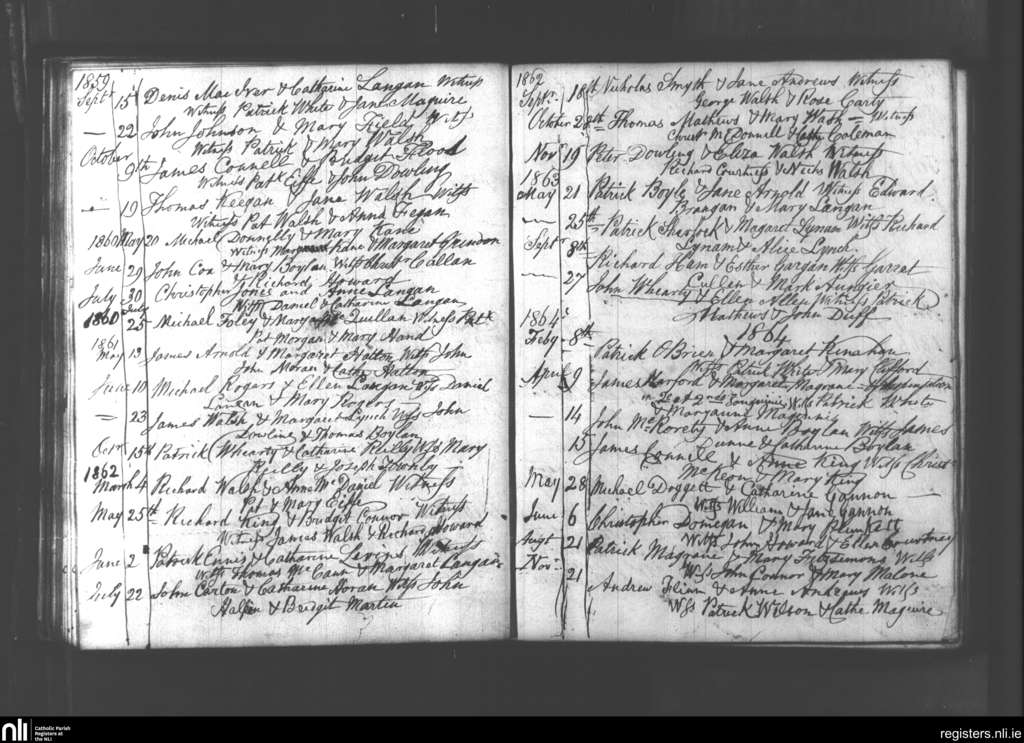 1859
Septr 15th Denis Mac Iver & Cathrine Langan Witness
Witness Patrick White & Jane Maguire
— 22 John Johnson & Mary Fields
Witness Patrick & Mary Walsh
October 9th James Connell & Bridget Flood
Witness Patk Effe & John Dowling
— 19 Thomas Keegan & Jane Walsh Witss
Witness Pat Walsh & Anna Fegan
1860 May 20 Michael Donnelly & Mary Kane
Witness Kane & Margaret
June 29 John Cox & Mary Boylan Witss Callan
& Richard Howard
July 30 Christopher Jones and Anne Langan
Witss Daniel & Catharine Langan
1860 July 25 Michael Foley & Mary Quillan Witness Patk
Pat Morgan & Mary Hand
1861
May 13 James Arnold & Margaret Hatton Witss John
John Moran & Cathe Hatton
June 10 Michael Rogers & Ellen Langan Wss Daniel
Langan & Mary Rogers
— 23 James Walsh & Margaret Lynch Wss John
Dowling & Thomas Boylan
Octr 15th Patrick Whearty & Catharine Reilly Wss Mary
Reilly & Joseph
1862
March 4 Richard Walsh & Anne Mc Daniel Witness
Pat & Mary Effe
May 25th Richard King & Bridget Connor Witness
Witness James Walsh & Richard Howard
June 2 Patrick Ennis & Catharine Levins Witness
Witss Thomas Mc Cann & Margaret Langan
July 22 John Carton & Catharine Horan Witss John
Halpin & Bridget Martin
1862
Septr 18th Nicholas Smyth & Jane Andrews Witness
George Walsh & Rose Carty
October 28th Thomas Mathews & Mary Witness
Christ McDonnell & Cathe Coleman
Novr 19 Peter Dowling & Eliza Walsh Witness
Richard & Nichs Walsh
1863
May 21 Patrick Boyle & Jane Arnold Witness Edward
Brangan & Mary Langan
— 25th Patrick Sherlock & Magaret Lynam Witss Richard
Lynam & Alice Lynch
Septr 8th Richard Ham & Esther Gargan Wss Garrat
Cullen & Mark
— 27 John Whearty & Ellen Allen Witness Patrick
Mathews & John Duff
1864
1864
Feby 8th Patrick OBrien & Margaret Kinahan
Witss Patrick White & Mary Clifford
April 9 James Harford & Margaret Magrane
in 2 et 2 Wss Patrick White
& Maryanne
— 14 John McKorety & Anne Boylan Witss James
Dunne & Catharine Boylan
15 James Connell & Anne King Wss Christ
McKeon & Mary King
May 28 Michael Doggett & Catharine Gannon —
Witss William & Jane Gannon
June 6 Christopher Donegan & Mary Plunkett
Witss John Howard & Ellen Courtney
Augt 21 Patrick Magrane & Mary Fitzsimons Witss
Wss John Connor & Mary Malone
Novr 21 Andrew Flinn & Anne Andrews Witss
Wss Patrick Wilson & Cathe Maguire
nli
Catholic Parish
Registers at
the NLI
registers.nli.ie